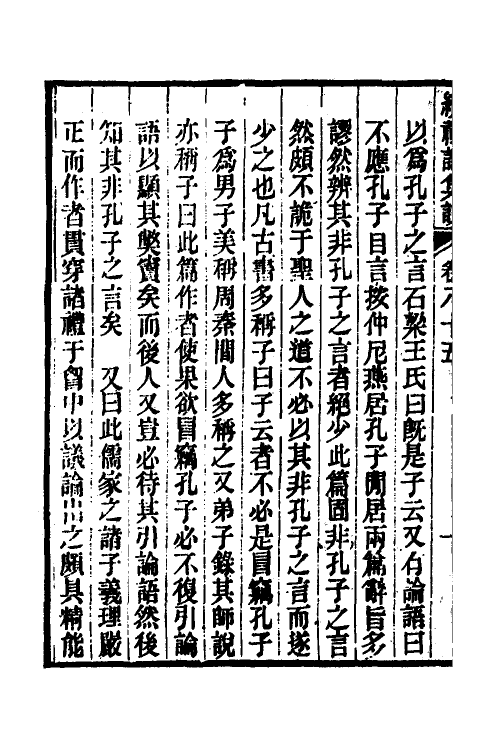 續禮記集說 卷八十五 一
以爲孔子之言石梁王氏曰旣是子云又有論語曰
不應孔子自言按仲尼燕居孔子閒居兩篇辭旨多
謬然辨其非孔子之言者絕少此篇固非孔子之言
然頗不詭于聖人之道不必以其非孔子之言而遂
少之也凡古書多稱子曰子云者不必是冒竊孔子
子爲男子美稱周秦間人多稱之又弟子錄其師說
亦稱子曰此篇作者使果欲冒竊孔子必不復引論
語以顯其獘竇矣而後人又豈必待其引論語然後
知其非孔子之言矣 又曰此儒家之諸子義理嚴
正而作者貫穿諸禮于胷中以議論出之頗具精能